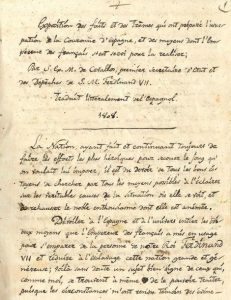 1
Exposition des faits et des Trames qui ont préparé l'usur
pation de la Couronne d'Espagne, et des moyens dont l'Em
pereur des français s'est servi pour la réaliser;
Par S. E. M. de Cevallos, premier Secretaire d'Etat et
des Dépêches de S. M. Ferdinand VII.
Traduit litteralement de l'Espagnol.
1808.
La Nation ayant fait et continuant toujours de
faire les efforts les plus héroïques pour secouer le joug qu'
on voulait lui imposer, il est du devoir de tous les bons ci
toyens de chercher par tous les moyens possibles à l'éclairer
sur les véritables causes de la situation où elle se voit, et
de rechausser le noble enthousiasme dont elle est animée.
Dévoiler à l'Espagne et à l'univers entier les
moyens que l'Empereur des français a mis en usage
pour s'emparer de la personne de notre Roi Ferdinand
VII et réduire à l'esclavage cette nation grande et gé
néreuse; voilà sans doute un sujet bien digne de ceux qui,
comme moi, se trouvent à même de le pouvoir traiter,
puisque les circonstances m'ont rendu témoin des évène